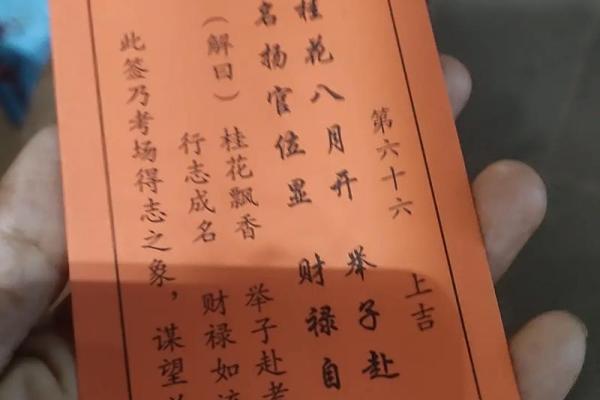 第六十六 上吉
桂花八月开 举子赴
名扬官位显 财禄自
（解曰）
桂花飘香 举子赴
行志成名 财禄如
此签乃考场得志之象，谋望